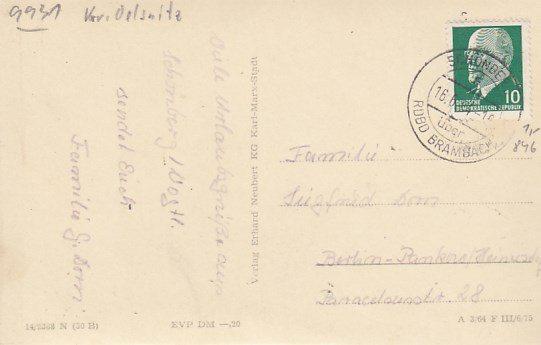 9931 Kr. Oelsnitz
Viele Urlaubsgrüße aus
Schönberg / Vogtl.
sendet Euch
Familie G. Dorn
Verlag Erhard Neubert KG Karl-Marx-Stadt
SCHÖNBE
16.
über
RDBD BRAMBACH
DEUTSCHE
DEMOKRATISCHE REPUBLIK
10
846
Familie
Siegfried Dorn
Berlin-Pankow/
Paracelsusstr. 28
14/5358 N (30 H)
EVP DM —,20
A 3/64 F III/6/15